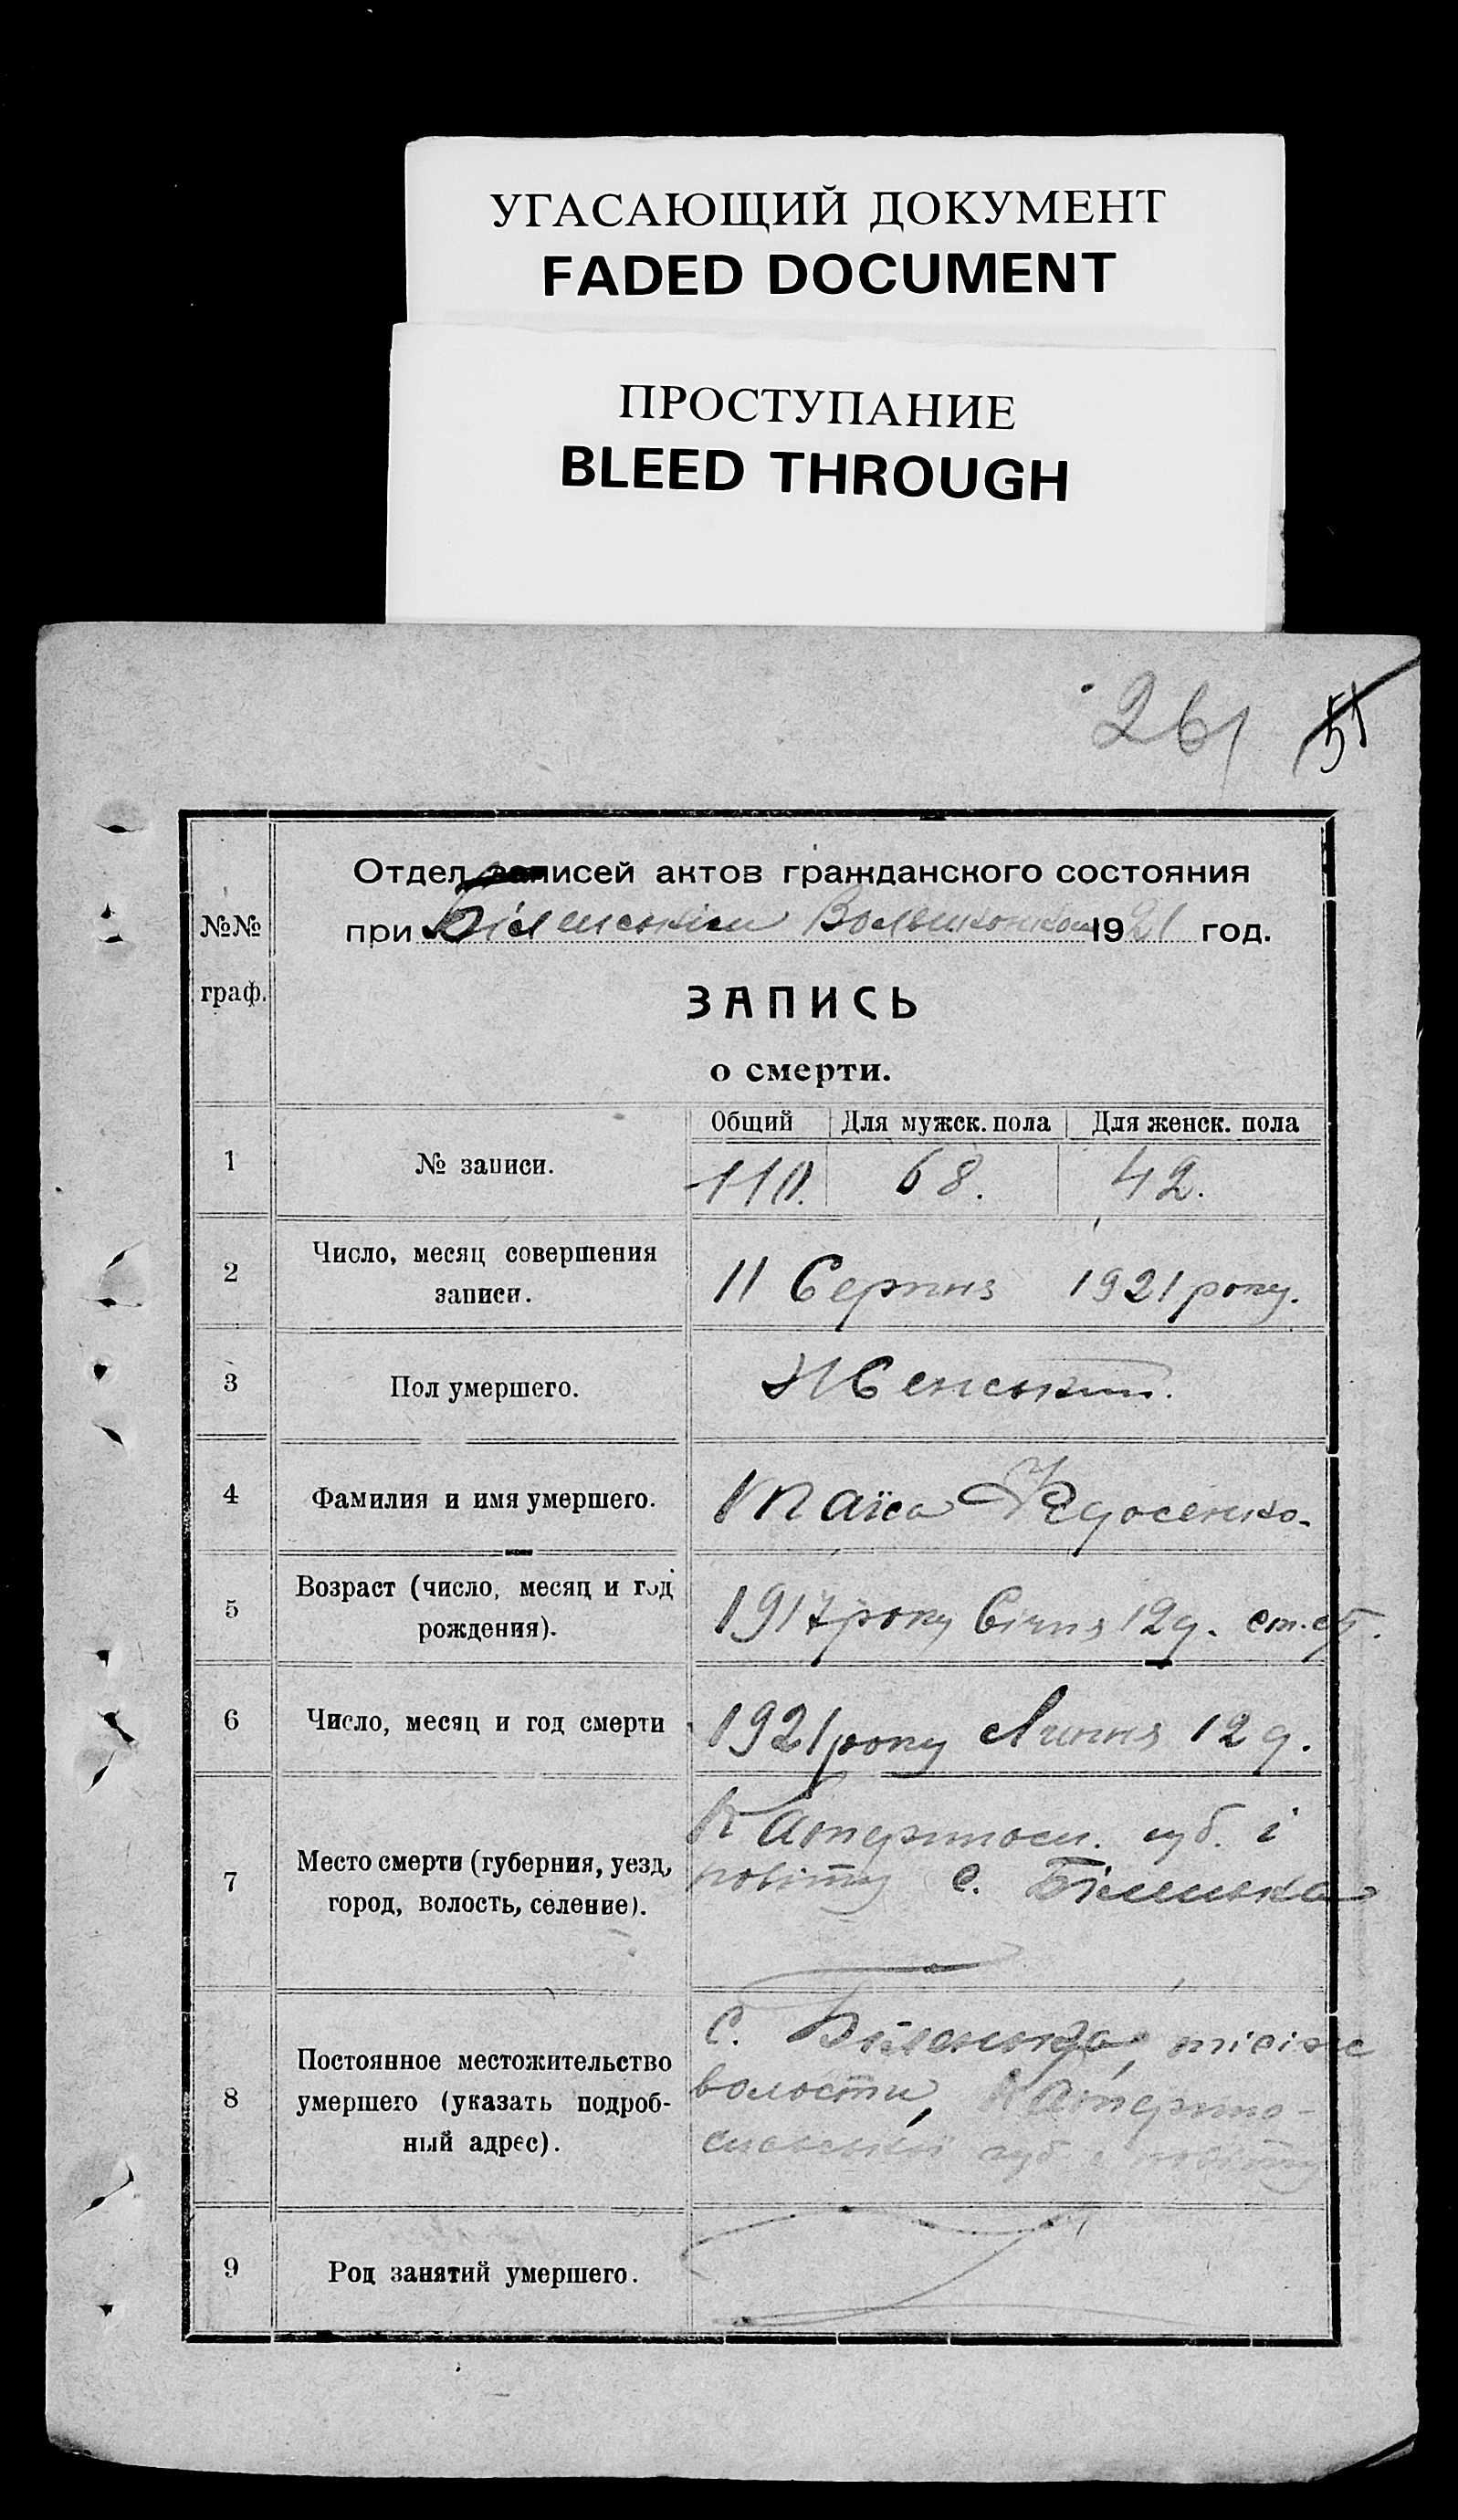 УГАСАЮЩИЙ ДОКУМЕНТ
FADED DOCUMENT
ПРОСТУПАНИЕ
BLEED THROUGH
261 51
№№ граф.
Отдел записей актов гражданского состояния
при Біленськім 1921 год.
ЗАПИСЬ
о смерти.
Общий Для мужск. пола Для женск. пола
1 № записи. 110. 68. 42.
2 Число, месяц совершения
записи.
11 Серпня 1921 року.
3 Пол умершего. Женський.
4 Фамилия и имя умершего. Таїса Федосенко.
5 Возраст (число, месяц и год
рождения).
1917 року Січня 12 д. ст. ст.
6 Число, месяц и год смерти 1921 року Липня 12 д.
7 Место смерти (губерния, уезд,
город, волость, селение).
Катериносл. губ. і
повіту с. Біленька
8 Постоянное местожительство
умершего (указать подроб-
ный адрес).
С. Біленька,
волости, Катерино-
славської губ. і повіту
9 Род занятий умершего.